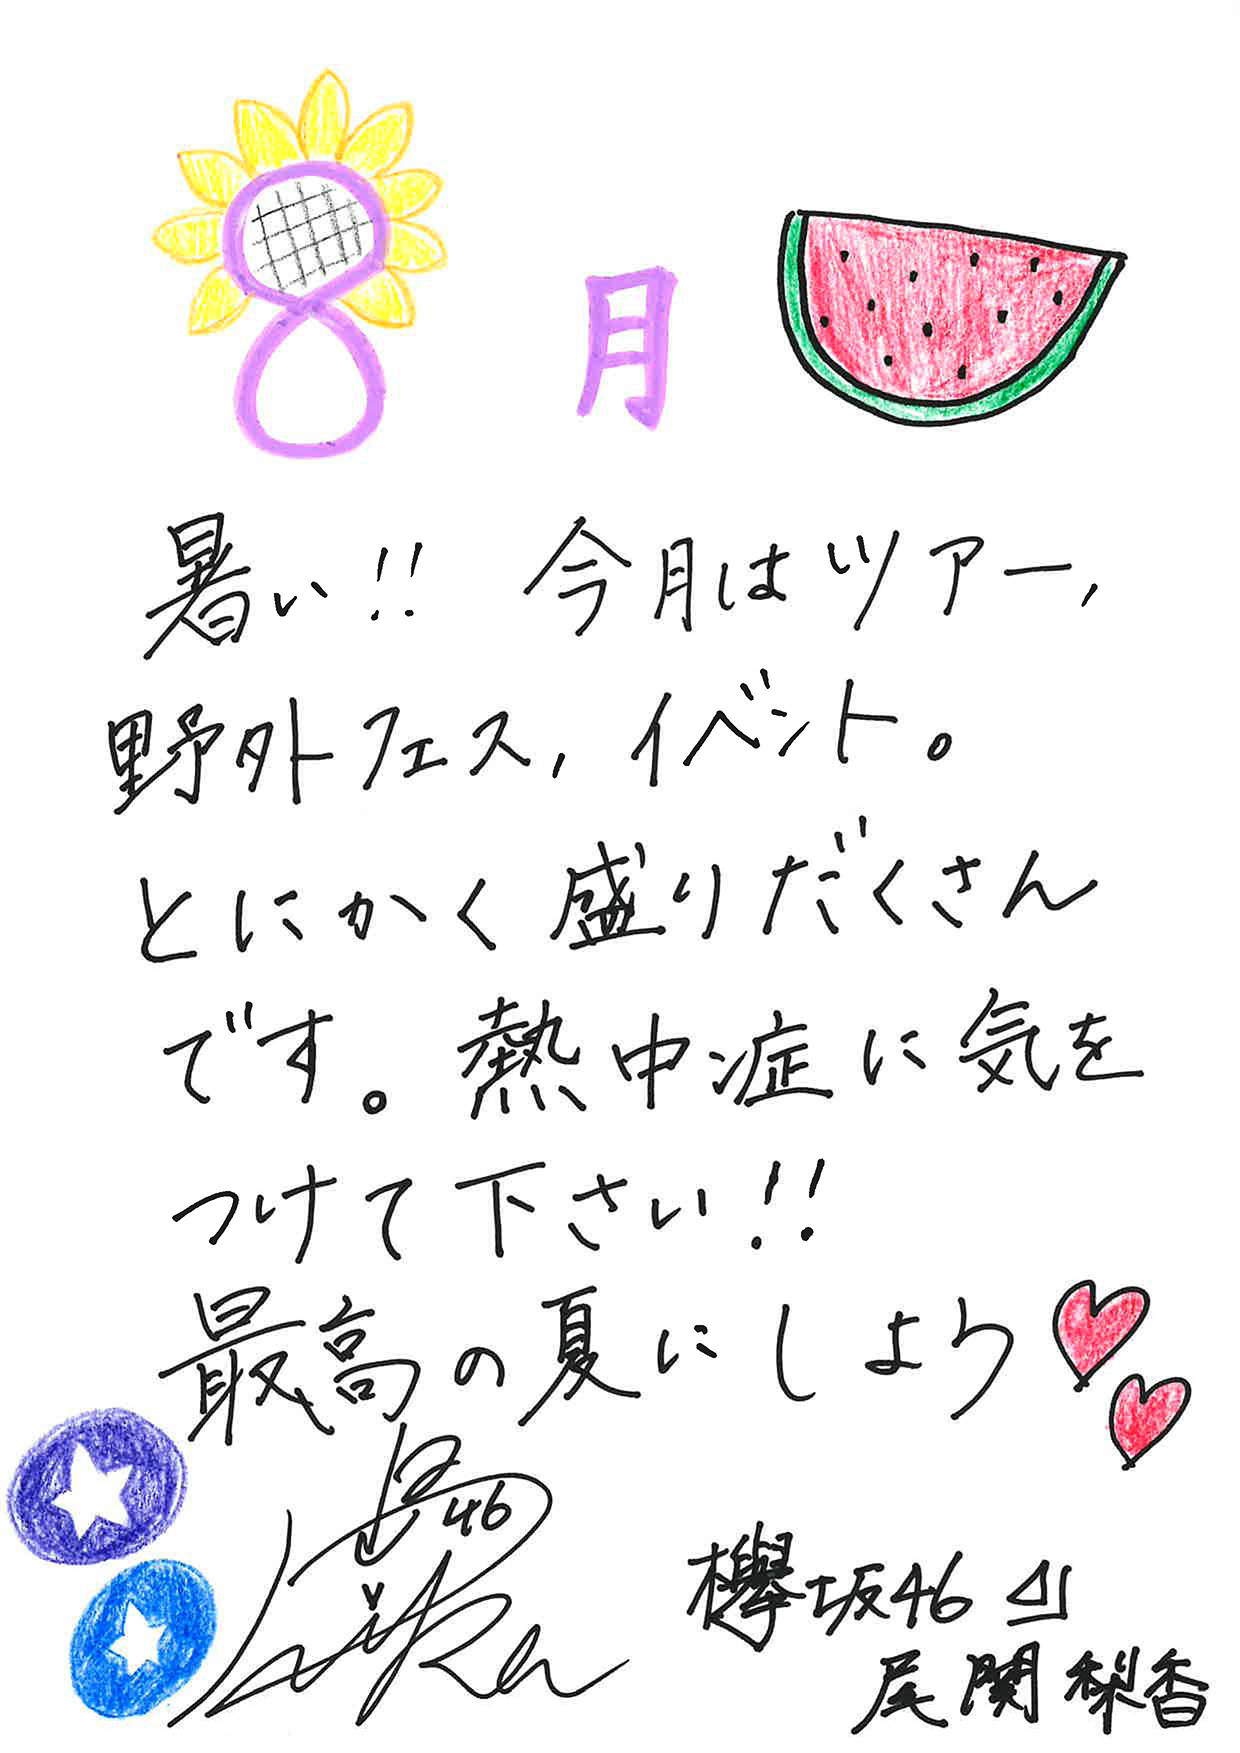 8月
暑い!! 今月はツアー,
野外フェス, イベント。
とにかく盛りだくさん
です。熱中症に気を
つけて下さい!!
最高の夏にしよう
46
欅坂46
尾関梨香